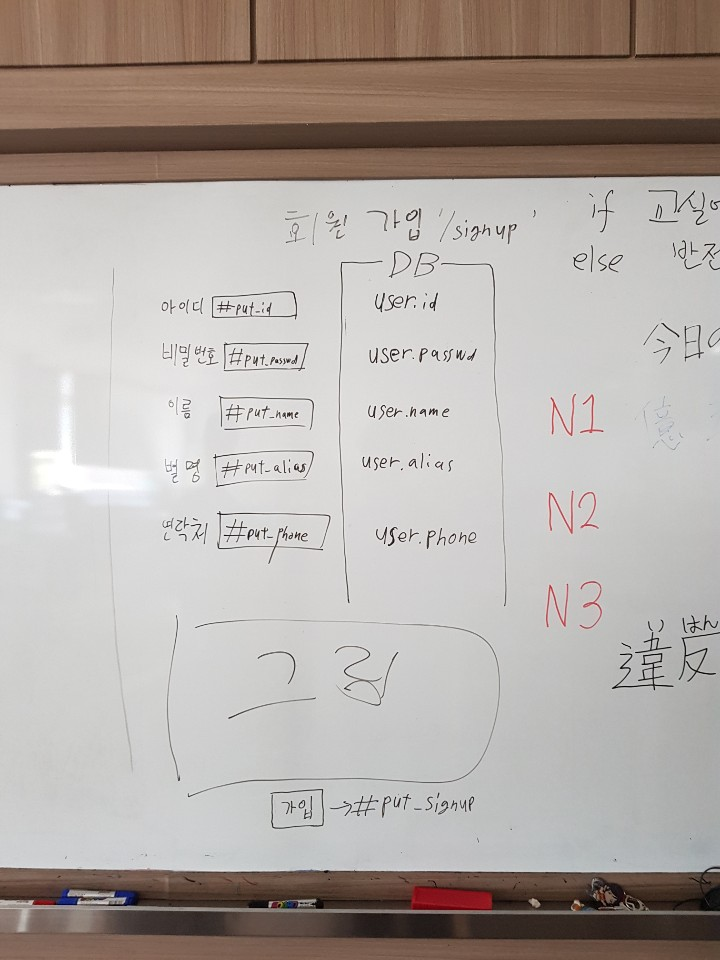 회원 가입 '/signup'
DB
아이디 #put_id user.id
비밀번호 #put_passwd user.passwd
이름 #put_name user.name
별명 #put_alias user.alias
연락처 #put_phone user.phone
그림
가입 → #put_signup
if 교실
else 반전
今日の
N1
憶
N2
N3
いはん
違反